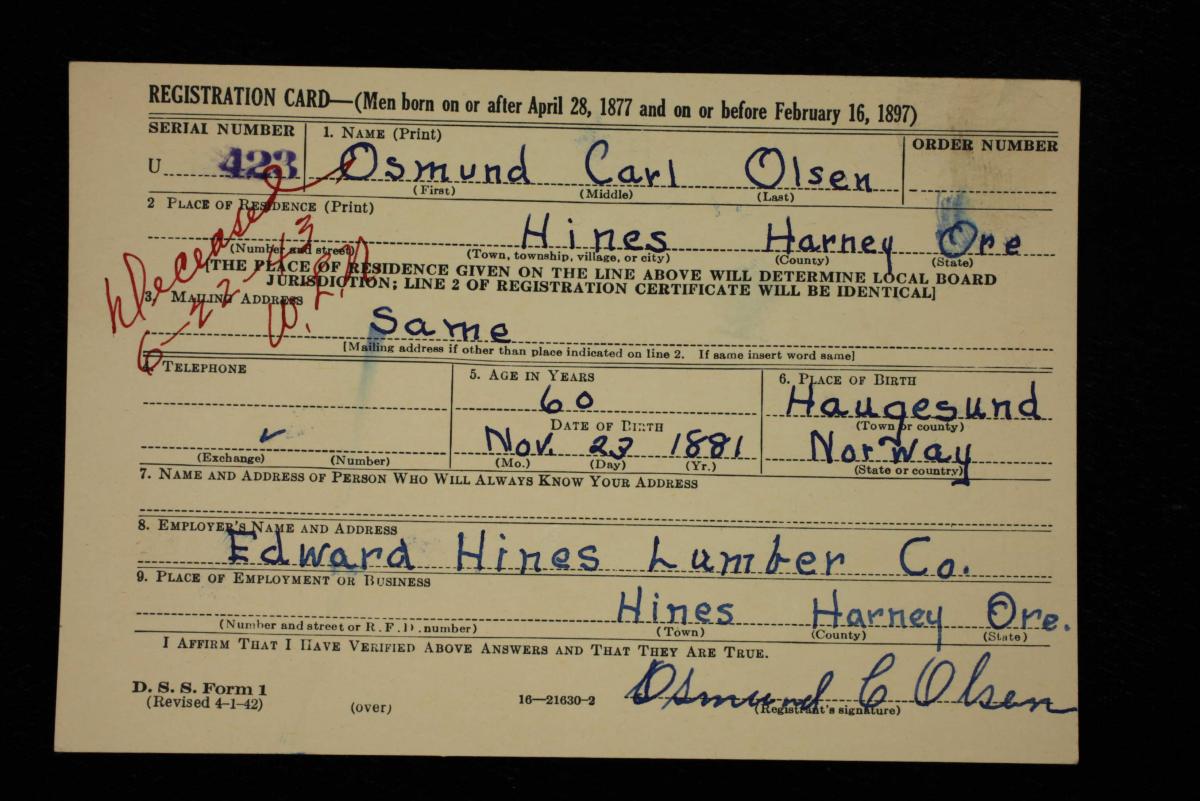 REGISTRATION CARD—(Men born on or after April 28, 1877 and on or before February 16, 1897)
SERIAL NUMBER 1. NAME (Print) ORDER NUMBER
U 423 Osmund Carl Olsen
(First) (Middle) (Last)
Deceased
6-22-43
2 PLACE OF RESIDENCE (Print)
Hines Harney Ore
(Number and street) (Town, township, village, or city) (County) (State)
[THE PLACE OF RESIDENCE GIVEN ON THE LINE ABOVE WILL DETERMINE LOCAL BOARD
JURISDICTION; LINE 2 OF REGISTRATION CERTIFICATE WILL BE IDENTICAL]
3. MAILING ADDRESS
Same
[Mailing address if other than place indicated on line 2. If same insert word same]
4. TELEPHONE 5. AGE IN YEARS 6. PLACE OF BIRTH
60 Haugesund
DATE OF BIRTH (Town or county)
Nov. 23 1881 Norway
(Exchange) (Number) (Mo.) (Day) (Yr.) (State or country)
7. NAME AND ADDRESS OF PERSON WHO WILL ALWAYS KNOW YOUR ADDRESS
8. EMPLOYER'S NAME AND ADDRESS
Edward Hines Lumber Co.
9. PLACE OF EMPLOYMENT OR BUSINESS
Hines Harney Ore.
(Number and street or R. F. D. number) (Town) (County) (State)
I AFFIRM THAT I HAVE VERIFIED ABOVE ANSWERS AND THAT THEY ARE TRUE.
D. S. S. Form 1
(Revised 4-1-42) (over) 16—21630-2 Osmund C Olsen
(Registrant's signature)